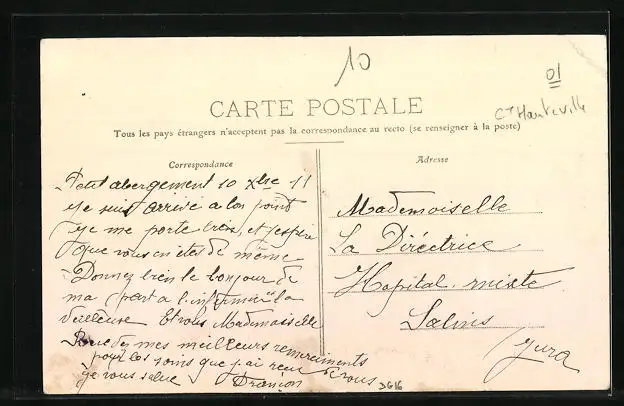 10
01
Ct Hauteville
CARTE POSTALE
Tous les pays étrangers n'acceptent pas la correspondance au recto (se renseigner à la poste)
Correspondance
Petit abergement 10 Xbre 11
Je suis arrivé a bon point
je me porte bien, et j'espère
que vous en êtes de même
Donnez bien le bonjour de
ma part a l'infirmière la
veilleuse Et vous Mademoiselle
mes meilleurs remerciments
pour les soins que j'ai reçu de vous
je vous salue
DG16
Adresse
Mademoiselle
La Diréctrice
Hopital mixte
Salins
Jura